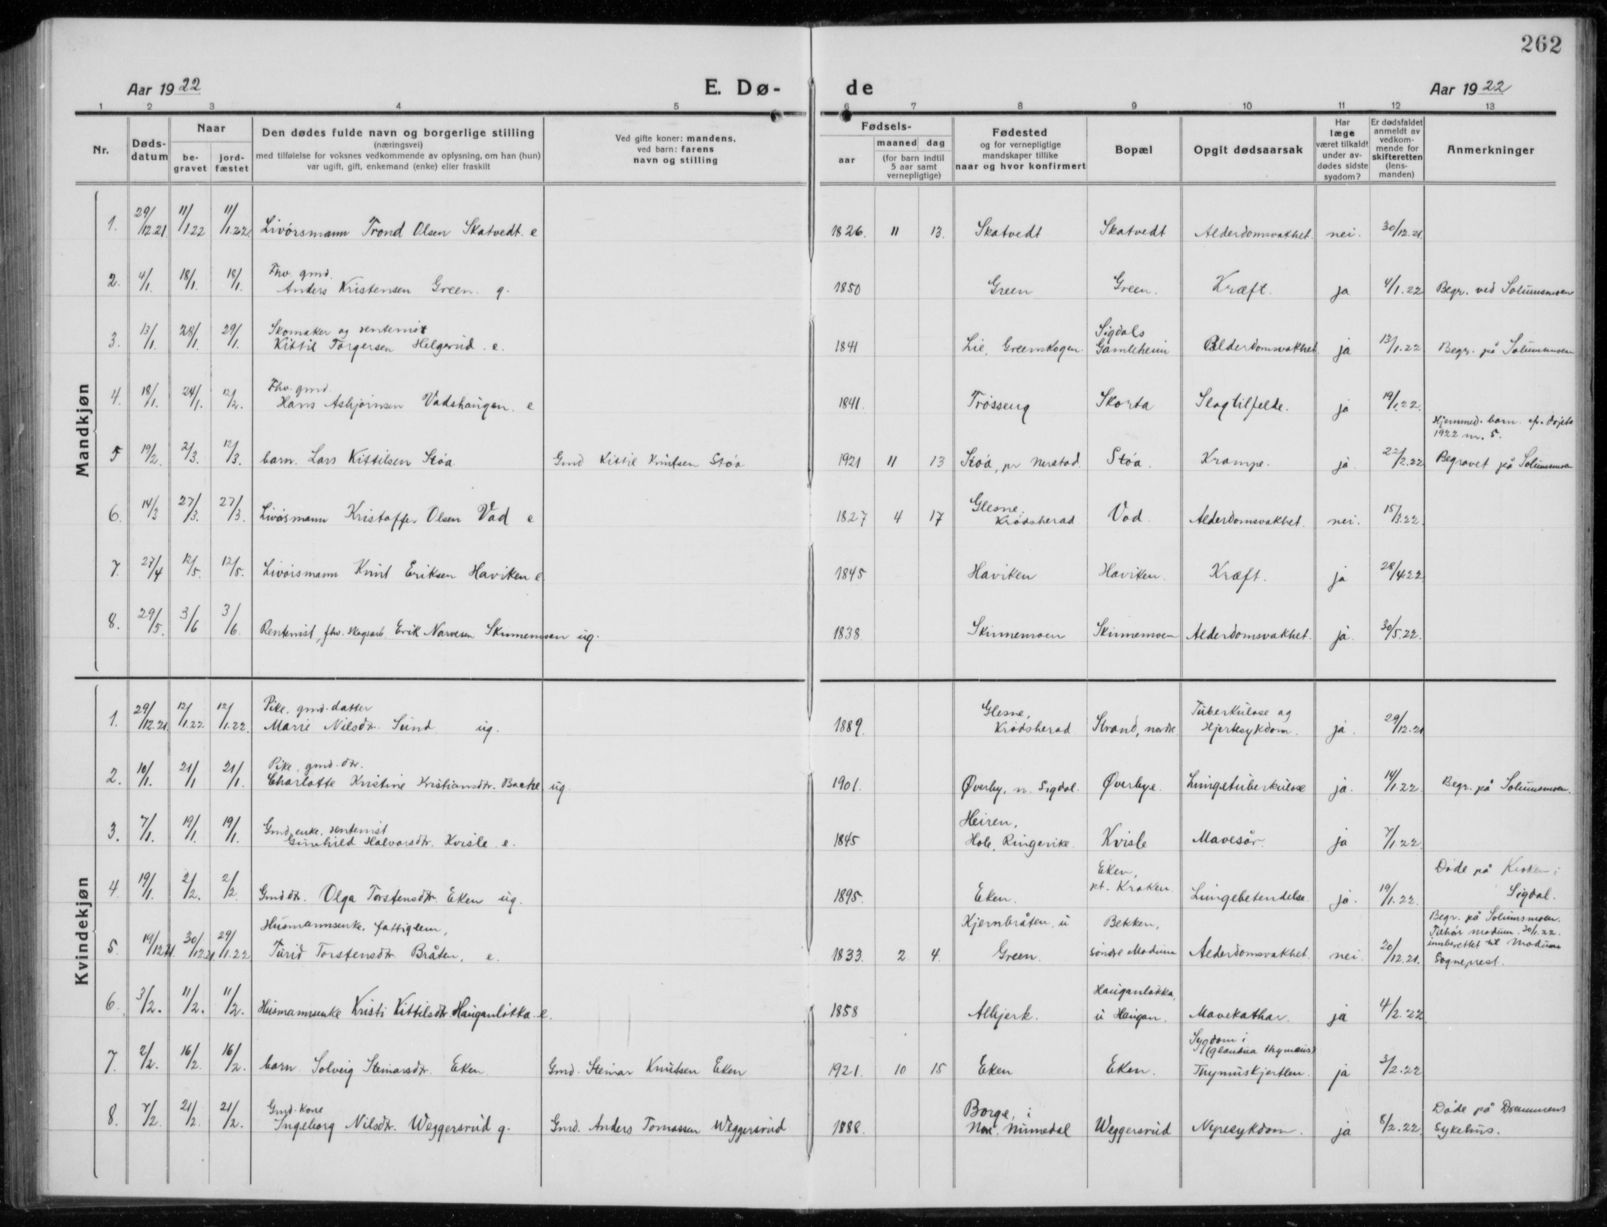 262
Aar 1922 E. Dø- de Aar 1922
1 2 3 4 5 6 7 8 9 10 11 12 13
Nr.
Døds-
datum
Naar
be-
gravet
jord-
fæstet
Den dødes fulde navn og borgerlige stilling
(næringsvei)
med tilføielse for voksnes vedkommende av oplysning, om han (hun)
var ugift, gift, enkemand (enke) eller fraskilt
Ved gifte koner: mandens,
ved barn: farens
navn og stilling
Fødsels-
aar
maaned dag
(for barn indtil
5 aar samt
vernepligtige)
Fødested
og for vernepligtige
mandskaper tillike
naar og hvor konfirmert
Bopæl
Opgit dødsaarsak
Har
læge
været tilkaldt
under av-
dødes sidste
sygdom?
Er dødsfaldet
anmeldt av
vedkom-
mende for
skifteretten
(lens-
manden)
Anmerkninger
Mandkjøn
1. 29/12.21 11/1.22 11/1.22 Livørsmann Trond Olsen Skatvedt. e 1826. 11 13. Skatvedt Skatvedt Alderdomsvakhet. nei. 30/12.21
Fhv. gmd.
2. 4/1. 18/1. 18/1. Anders Kristensen Green. g. 1850 Green Green. Kræft. ja 4/1.22 Begr. ved Solumsmoen
Skomaker og rentenist Sigdals
3. 13/1. 28/1. 29/1. Kittil Torgersen Helgerud. e. 1841 Lie, Greenskogen Gamleheim Alderdomsvakhet ja 13/1.22 Begr. på Solumsmoen
Fhv. gmd.
4. 18/1. 24/1. 12/2. Hans Asbjørnsen Vadshaugen. e 1841. Trøsseng Skorta Slagtilfelde. ja 19/1.22.
Hjemmed. barn
1922 nr. 5.
5 19/2. 2/3. 12/3. barn. Lars Kittilsen Støa Gmd Kittil Knutsen Støa 1921 11 13 Støa, pr Nerstad. Støa. Krampe. ja. 22/2.22 Begravet på Solumsmoen
Glesne,
6. 14/3 27/3. 27/3. Livørsmann Kristoffer Olsen Vad e 1827 4 17 Krødsherad Vad. Alderdomsvakhet. nei. 15/3.22.
7. 27/4 12/5. 12/5. Livørsmann Knut Eriksen Haviken e. 1845 Haviken Haviken. Kræft. ja 28/4.22
8. 29/5. 3/6 3/6. Rentenist, fhv. skogsarb. Erik Narvesen Skinnemoen ug. 1838 Skinnemoen Skinnemoen Alderdomsvakhet. ja. 30/5.22.
Kvindekjøn
Pike, gmd. datter Glesne, Tuberkulose og
1. 29/12.21 12/1.22 12/1.22. Marie Nilsdtr. Sund ug. 1889. Krødsherad Strand, nedre Hjertesykdom. ja. 29/12.21
Pike, gmd. dtr.
2. 10/1. 21/1 21/1. Charlotte Kristine Kristiansdtr. Baake, ug. 1901. Øverby, n. Sigdal. Øverbye. Lungetuberkulose ja. 14/1.22 Begr. på Solumsmoen.
Gmd. enke, rentenist Heiren,
3. 7/1. 19/1 19/1. Gunhild Halvorsdtr. Kvisle. e. 1845 Hole, Ringerike Kvisle Mavesår. ja 7/1.22
Eken, Døde på Kroken i
4 19/1. 2/2. 2/2 Gmd.dtr. Olga Torstensdtr. Eken ug. 1895. Eken. pt. Kroken. Lungebetendelse ja. 19/1.22. Sigdal.
Husmannsenke, fattiglem, Kjernbråten, u Bekken, Begr. på Solumsmoen.
Tilhør Modum. 30/1.22.
5. 19/12.21. 30/12.21 29/1.22 Turid Torstensdtr. Bråten, e. 1833. 2 4. Green. søndre Modum Alderdomsvakhet. nei. 20/12.21. innberettet til Modum
Sogneprest.
Hauganløkka,
6. 3/2. 11/2. 11/2. Husmannsenke Kristi Kittilsdtr. Hauganløkka. e. 1858 Albjerk. u Haugan. Mavekathar. ja 4/2.22
Sygdom i
(glandula thymus)
7. 2/2. 16/2. 16/2. barn Solveig Steinarsdtr. Eken Gmd. Steinar Knutsen Eken 1921. 10 15 Eken Eken. Thymuskjertlen. ja 3/2.22
Gmd. kone Borge, i Døde på Drammens
8. 7/2. 21/2. 21/2. Ingeborg Nilsdtr. Weggersrud g. Gmd. Anders Tomassen Weggersrud 1888. Nore, Numedal Weggersrud Nyresykdom. ja 8/2.22. Sykehus.